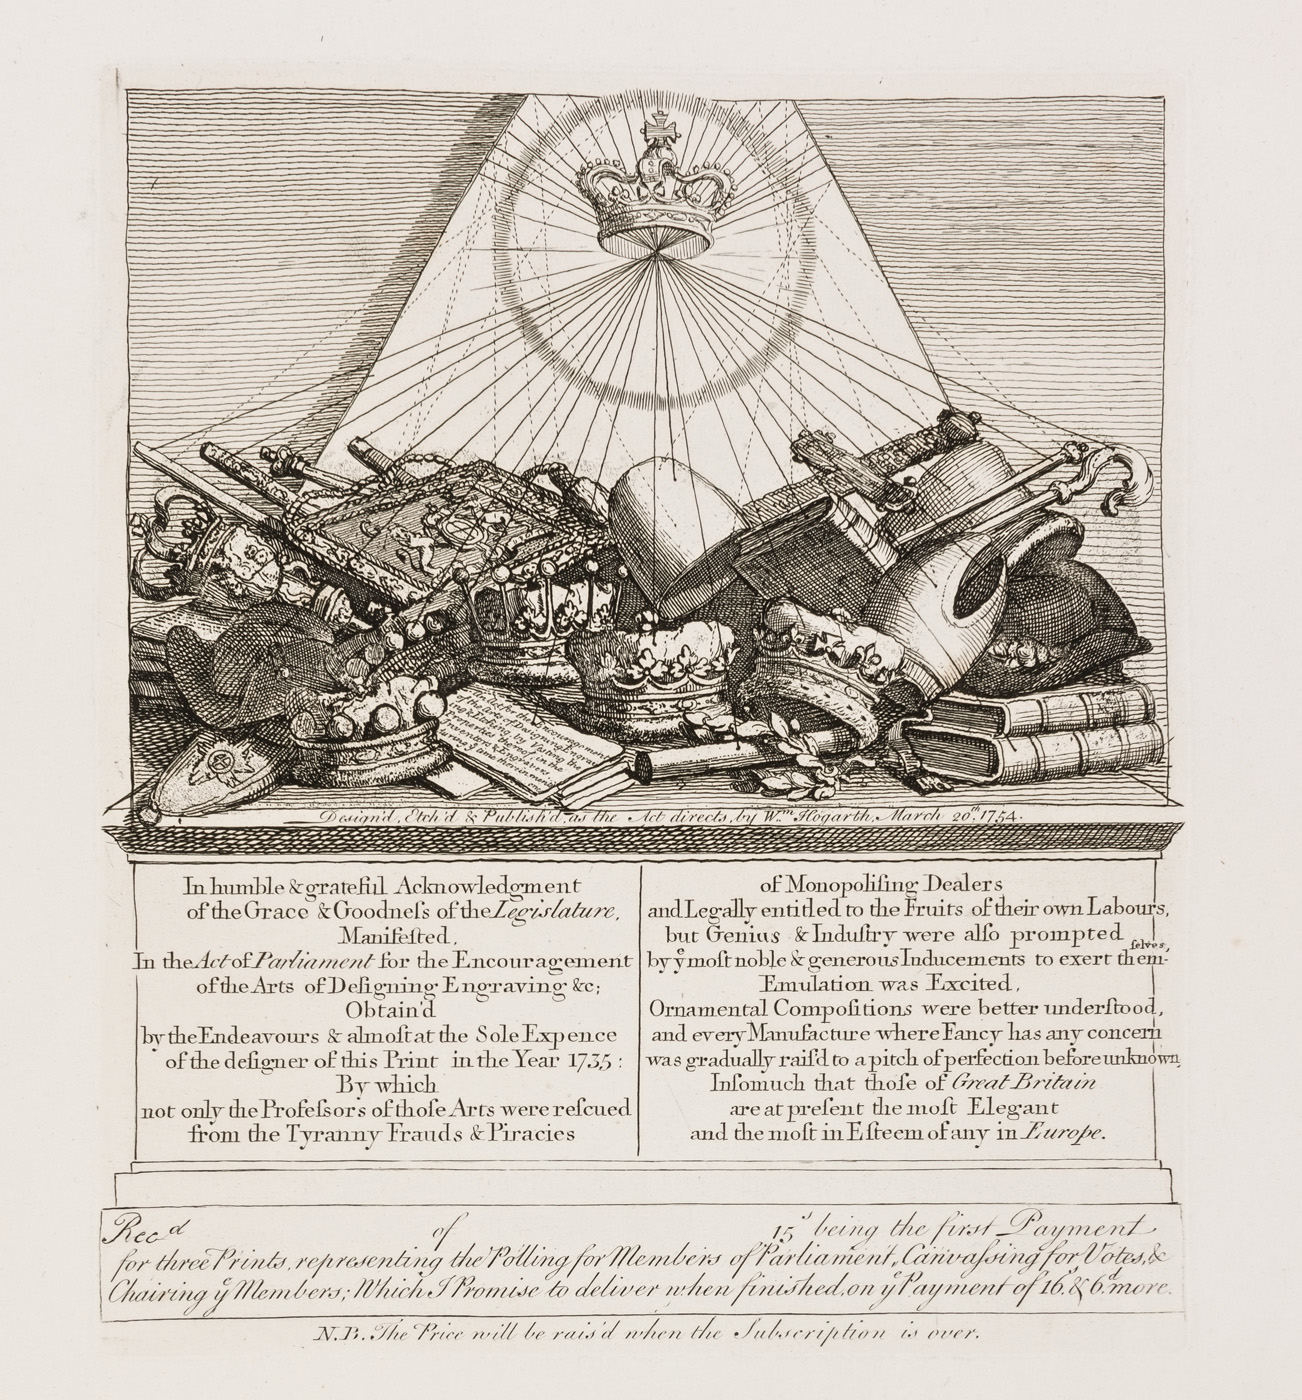 Design'd, Etch'd & Publish'd, as the Act directs, by Wm. Hogarth, March 20th. 1754.
In humble & grateful Acknowledgment
of the Grace & Goodneſs of the Legislature,
Manifeſted,
In the Act of Parliament for the Encouragement
of the Arts of Deſigning Engraving &c;
Obtain'd
by the Endeavours & almoſt at the Sole Expence
of the deſigner of this Print in the Year 1735:
By which
not only the Profeſsors of thoſe Arts were reſcued
from the Tyranny Frauds & Piracies
of Monopoliſing Dealers
and Legally entitled to the Fruits of their own Labours,
but Genius & Induſtry were alſo prompted
by yͤ moſt noble & generous Inducements to exert them-ſelves,
Emulation was Excited,
Ornamental Compoſitions were better underſtood,
and every Manufacture where Fancy has any concern
was gradually raiſ'd to a pitch of perfection before unknown,
Inſomuch that thoſe of Great Britain
are at preſent the moſt Elegant
and the moſt in Eſteem of any in Europe.
Recd of 15s being the first Payment
for three Prints, representing the Polling for Members of Parliament, Canvaſsing for Votes, &
Chairing yͤ Members; Which I Promise to deliver when finished, on yͤ Payment of 16s. & 6d. more.
N.B. The Price will be rais'd when the Subscription is over.